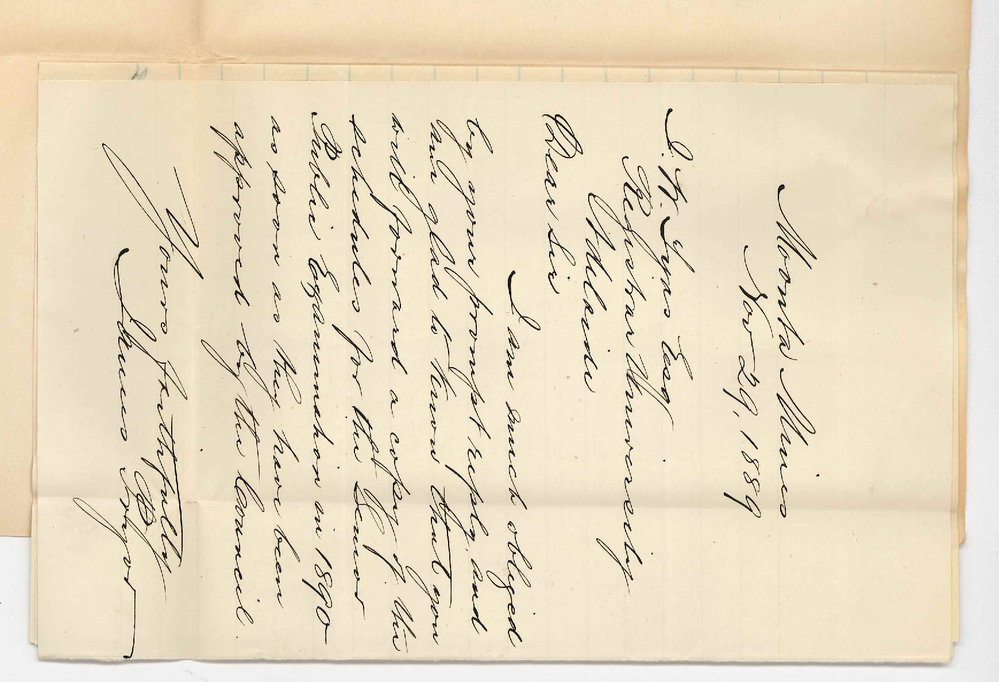 Moonta Mines
Nov 29, 1889
J. W. Tyas Esq
Registrar University
Adelaide
Dear Sir
I am much obliged
by your prompt reply and
am glad to know that you
will forward a copy of the
schedules for the Senior
Public Examination in 1890
as soon as they have been
approved by the Council.
Yours faithfully
James Pryor